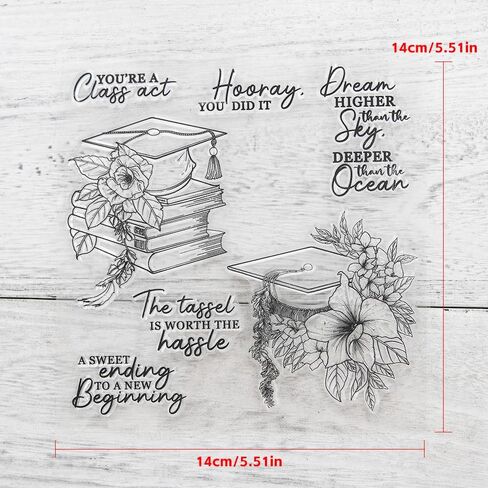 14cm/5.51in
YOU'RE A
Class act
Hooray,
YOU DID IT
Dream
HIGHER
than the
Sky,
DEEPER
than the
Ocean
The tassel
IS WORTH THE
hassle
A SWEET
ending
TO A NEW
Beginning
14cm/5.51in